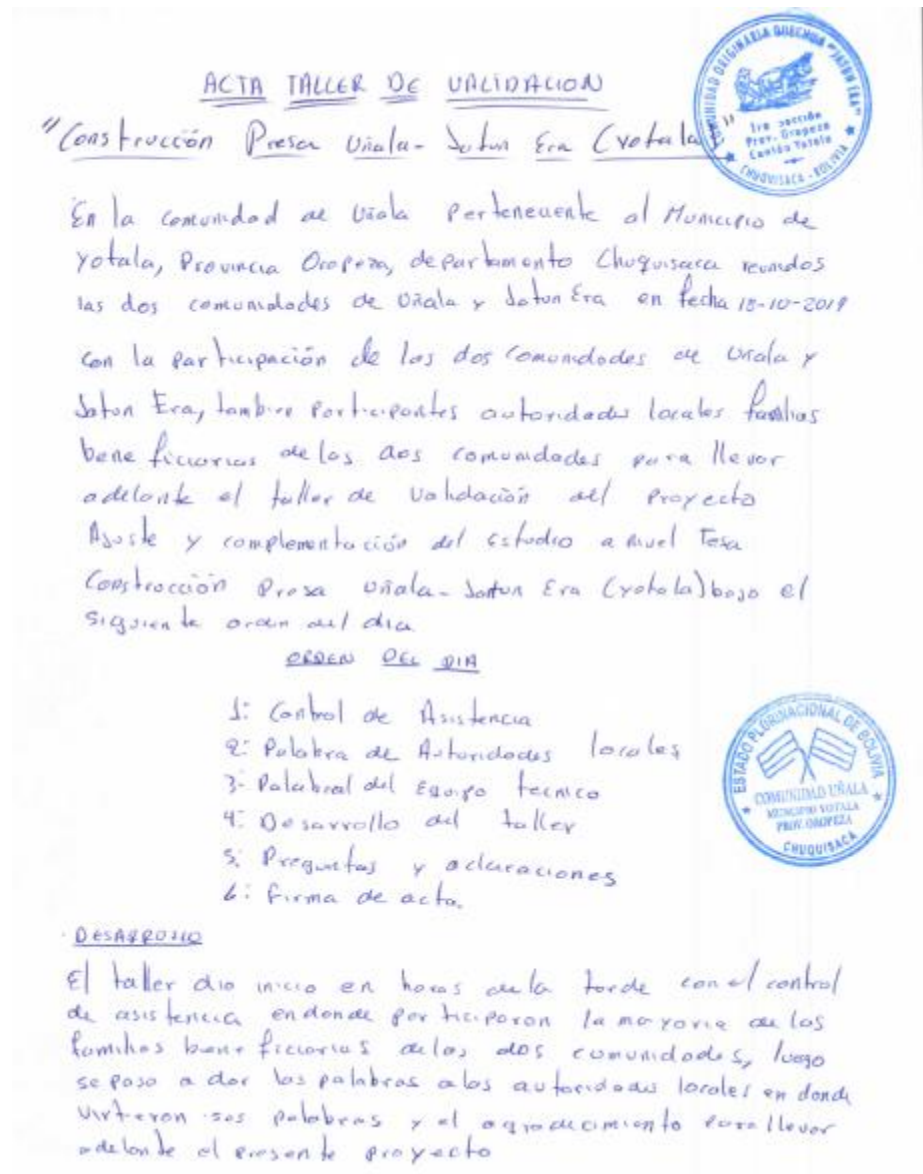 ACTA TALLER DE VALIDACION
"Construcción Presa Uñala- Jatun Era (yotala)"
COMUNIDAD ORIGINARIA QUECHUA "JATUN ERA"
1ra sección
Prov. Oropeza
Cantón Yotala
CHUQUISACA - BOLIVIA
En la comunidad de Uñala Perteneciente al Municipio de
Yotala, Provincia Oropeza, departamento Chuquisaca reunidos
las dos comunidades de Uñala y Jatun Era en fecha 15-10-2019
con la participación de las dos comunidades de Uñala y
Jatun Era, tambien participantes autoridades locales familias
beneficiarias de las dos comunidades para llevar
adelante el taller de Validación del Proyecto
Ajuste y complementación del Estudio a nivel Tesa
Construcción Presa Uñala- Jatun Era (yotala) bajo el
siguiente orden del dia
ORDEN DEL DIA
1: Control de Asistencia
2: Palabra de Autoridades locales
3- Palabral del Equipo tecnico
4: Desarrollo del taller
5: Preguntas y aclaraciones
6: Firma de acta.
ESTADO PLURINACIONAL DE BOLIVIA
COMUNIDAD UÑALA
MUNICIPIO YOTALA
PROV. OROPEZA
CHUQUISACA
DESARROLLO
El taller dio inicio en horas de la tarde con el control
de asistencia en donde participaron la mayoria de las
familias beneficiarias de las dos comunidades, luego
se paso a dar las palabras a las autoridades locales en donde
virtieron sus palabras y el agradecimiento para llevar
adelante el presente proyecto